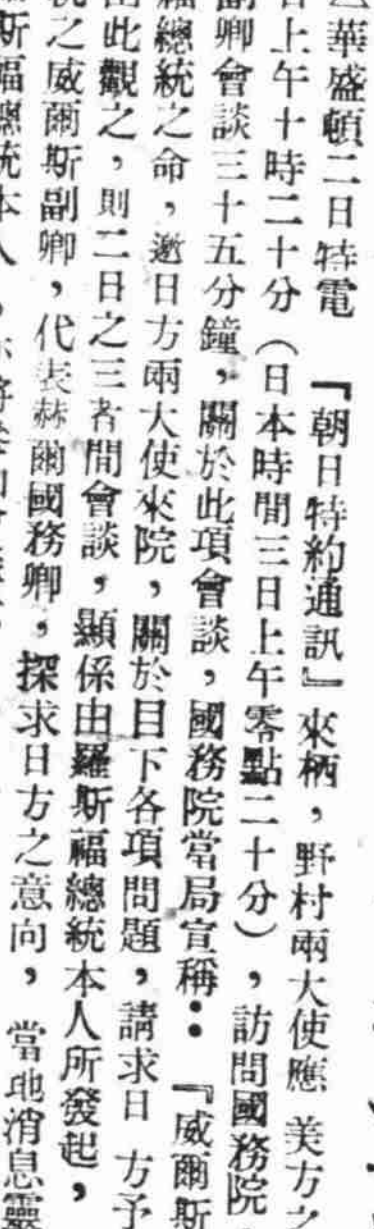 華盛頓二日特電　『朝日特約通訊』來栖，野村兩大使應　美方之
日上午十時二十分（日本時間三日上午零點二十分），訪問國務院
副卿會談三十五分鐘，關於此項會談，國務院當局宣稱：『威爾斯
福總統之命，邀日方兩大使來院，關於目下各項問題，請求日　方予
由此觀之，則二日之三者間會談，顯係由羅斯福總統本人所發起，
之威爾斯副卿，代表赫爾國務卿，探求日方之意向，當地消息靈
斯福總統本人